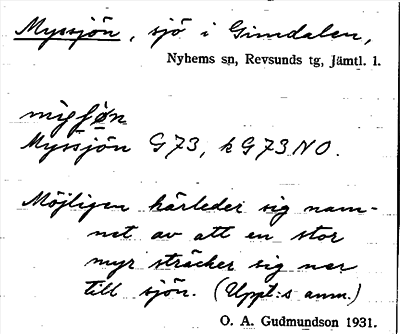 Myssjön, sjö i Gimdalen,
Nyhems sn, Revsunds tg, Jämtl. l.
Myssjön G73, k G73 NO.
Möjligen härleder sig nam-
net av att en stor
myr sträcker sig ner
till sjön. (Uppt:s anm.)
O. A. Gudmundson 1931.